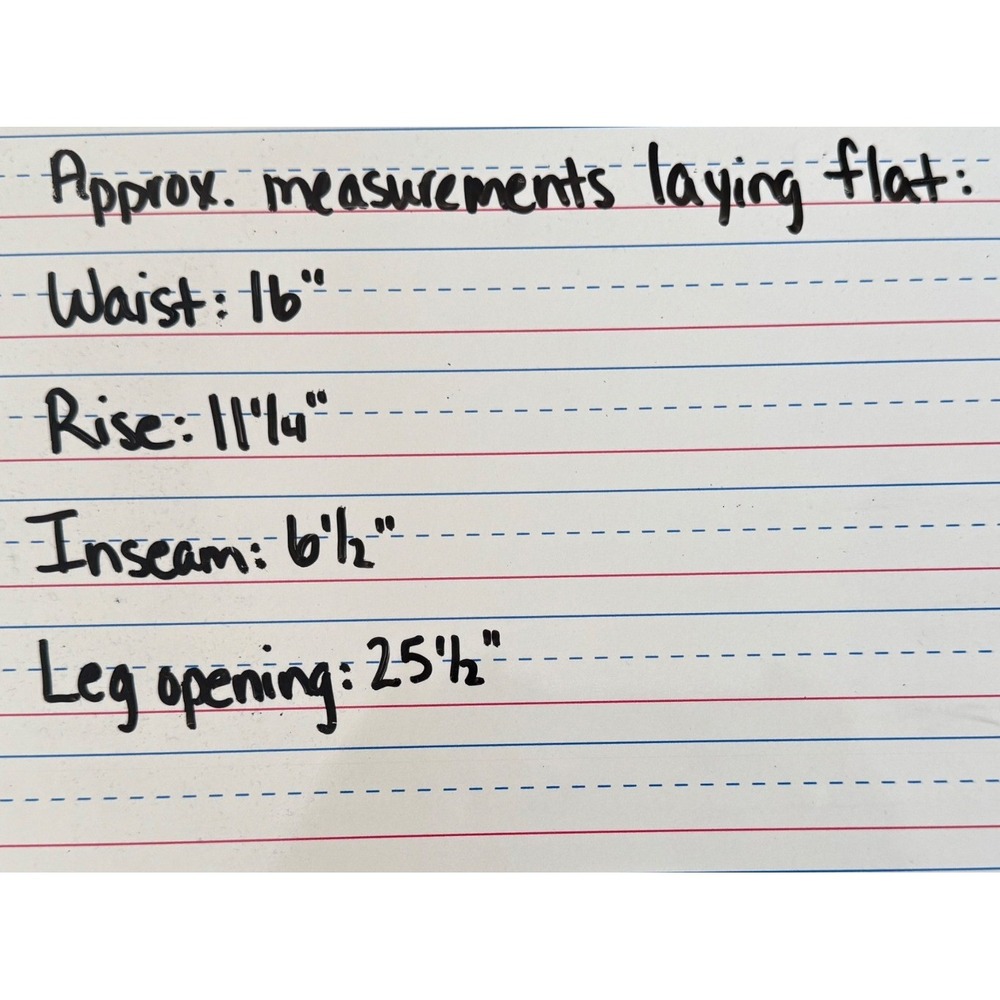 Approx. measurements laying flat:
Waist: 16"
Rise: 11 1/4"
Inseam: 6 1/2"
Leg opening: 25 1/2"